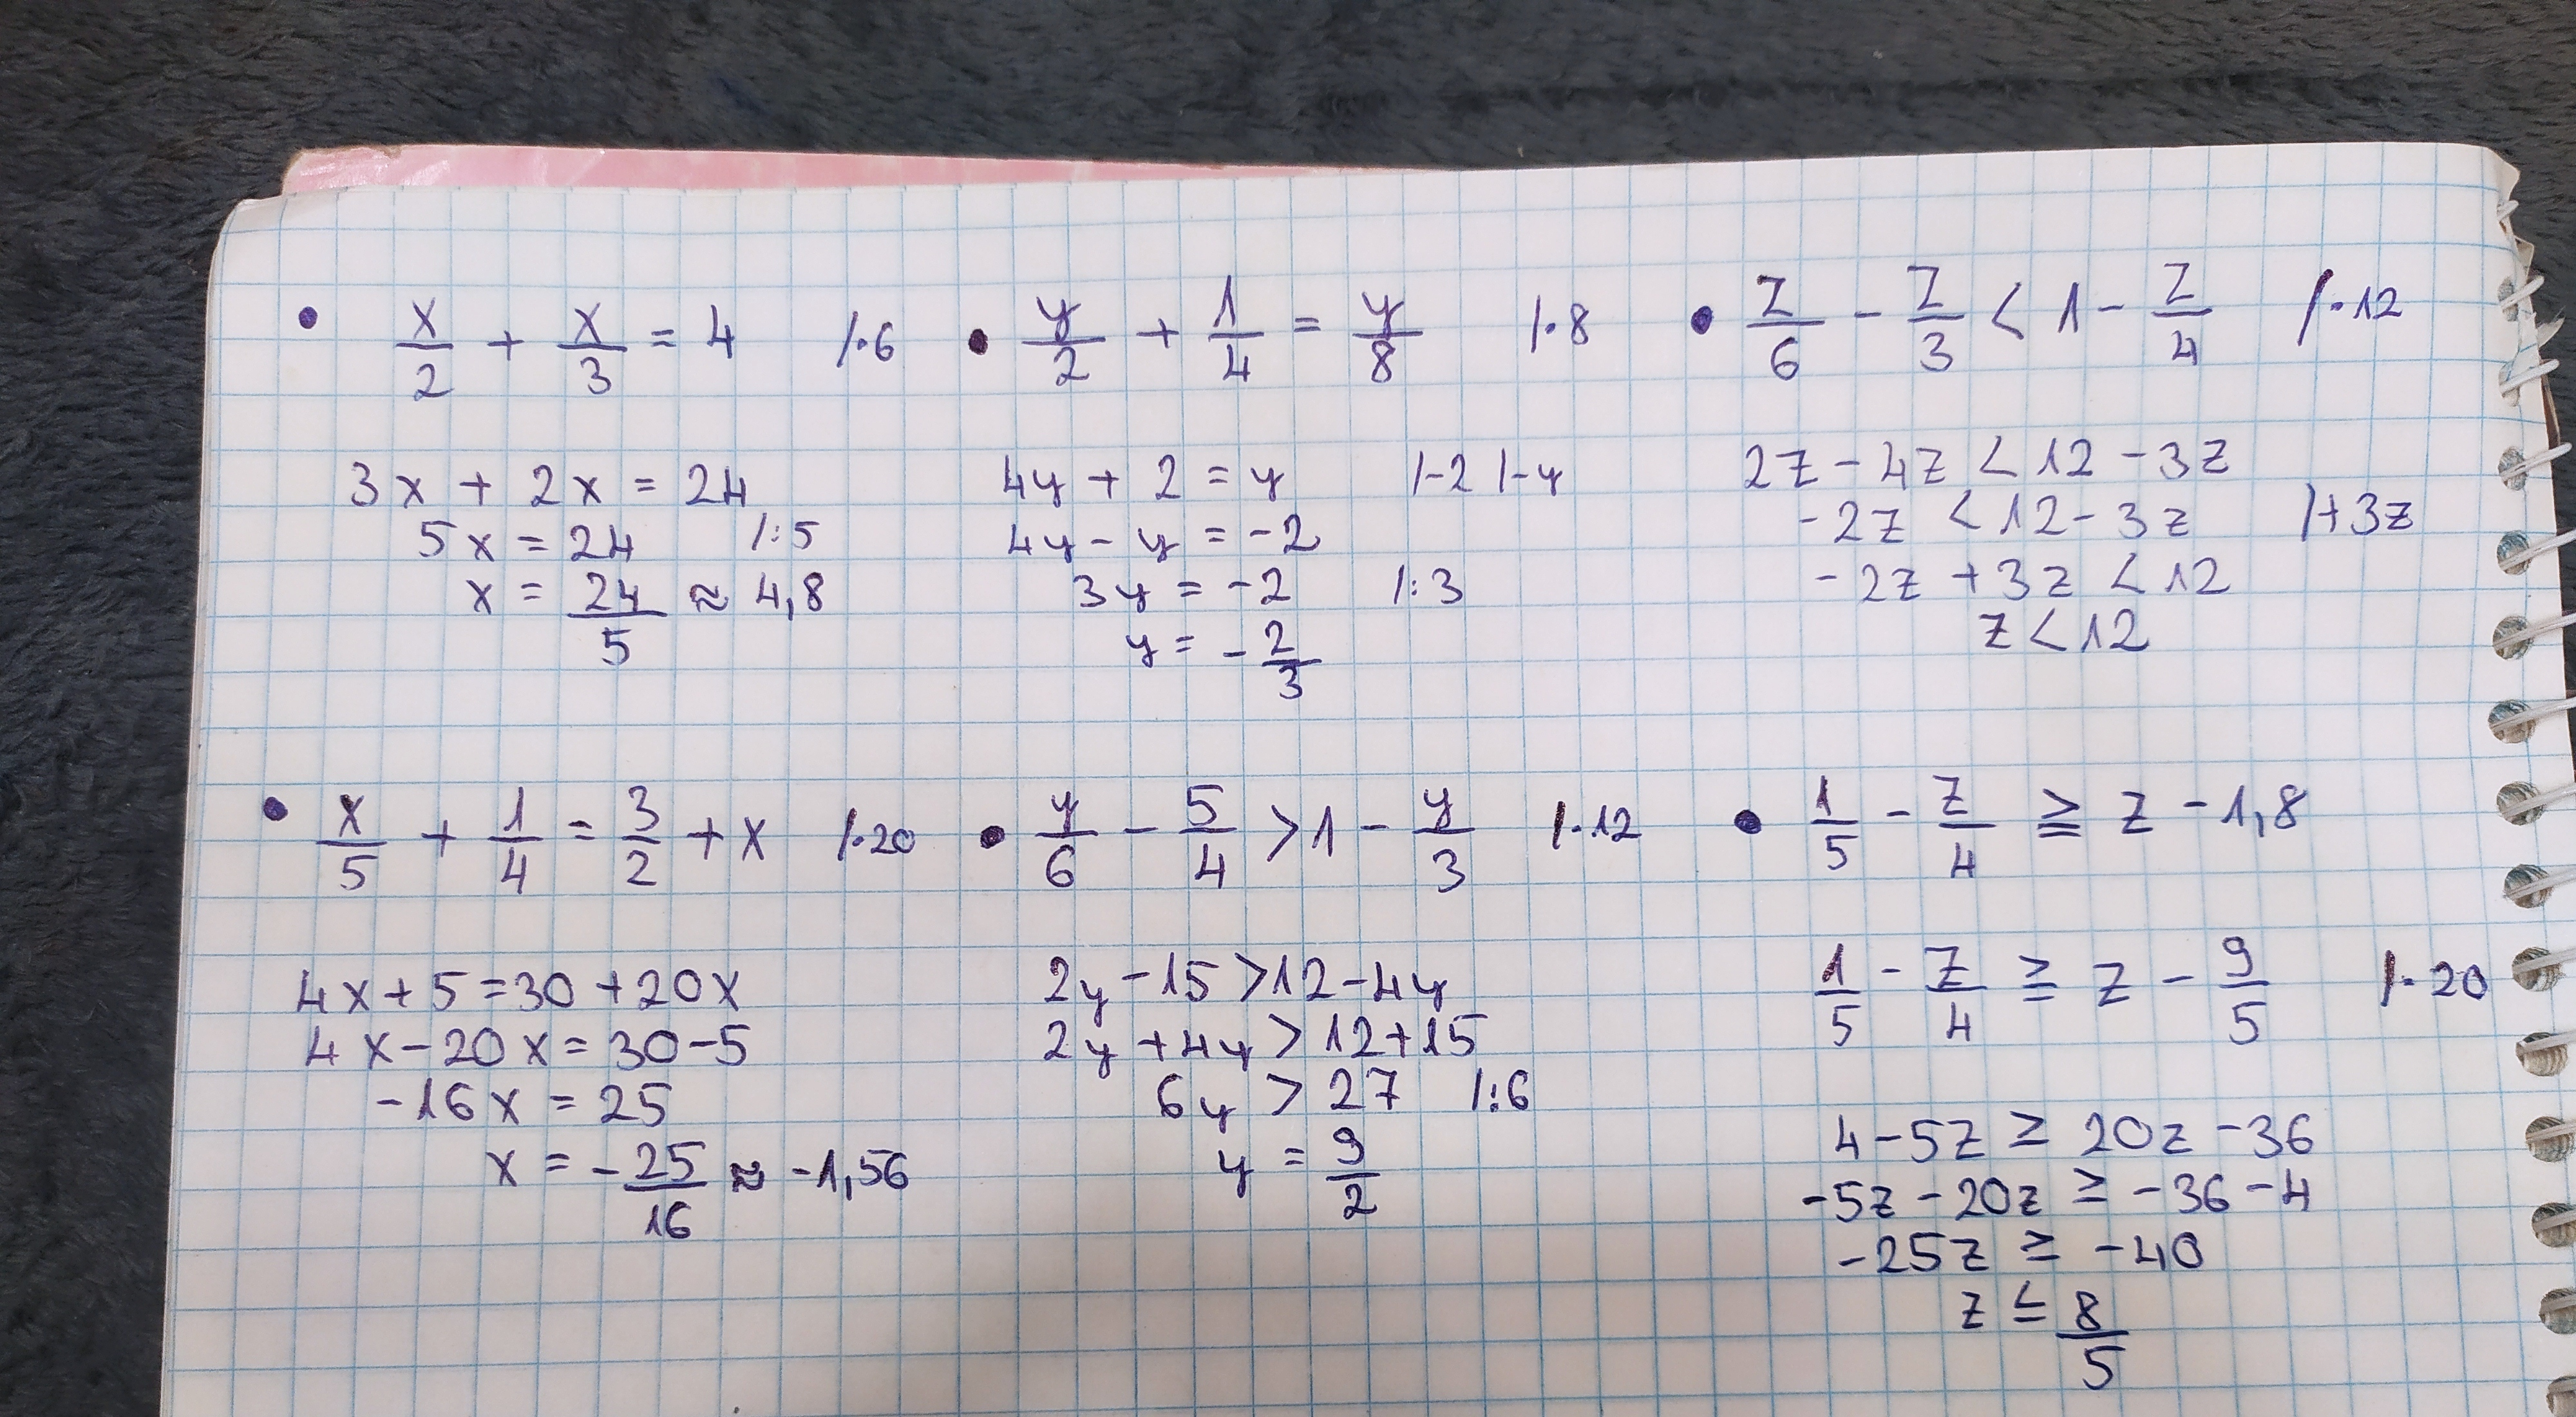 • x/2 + x/3 = 4 /·6
3x + 2x = 24
5x = 24 /:5
x = 24/5 ≈ 4,8
• y/2 + 1/4 = y/8 /·8
4y + 2 = y |-2 |-y
4y - y = -2
3y = -2 /:3
y = -2/3
• z/6 - z/3 < 1 - z/4 /·12
2z - 4z < 12 - 3z
-2z < 12 - 3z /+3z
-2z + 3z < 12
z < 12
• x/5 + 1/4 = 3/2 + x /·20
4x + 5 = 30 + 20x
4x - 20x = 30 - 5
-16x = 25
x = -25/16 ≈ -1,56
• y/6 - 5/4 > 1 - y/3 /·12
2y - 15 > 12 - 4y
2y + 4y > 12 + 15
6y > 27 /:6
y = 9/2
• 1/5 - z/4 ≧ z - 1,8
1/5 - z/4 ≧ z - 9/5 /·20
4 - 5z ≥ 20z - 36
-5z - 20z ≥ -36 - 4
-25z ≥ -40
z ≤ 8/5